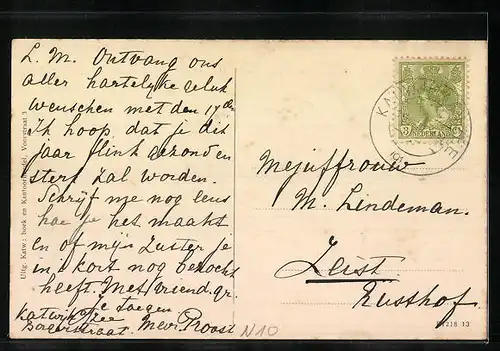 L. M. Ontvang ons
aller hartelyke geluk
wenschen met den 17den
Ik hoop dat je dit
jaar flink gezond en
sterk zal worden.
Schrijf me nog eens
hoe je het maakt
en of myn Zuster je
in kort nog bezocht
heeft. Met vriend. gr.
Katwijk a/Zee
Mevr. Proost
N10
Mejuffrouw
M. Lindeman.
Zeist
Rusthof
Uitg. Katw: boek en Kantoorhandel, Voorstraat 3
NEDERLAND